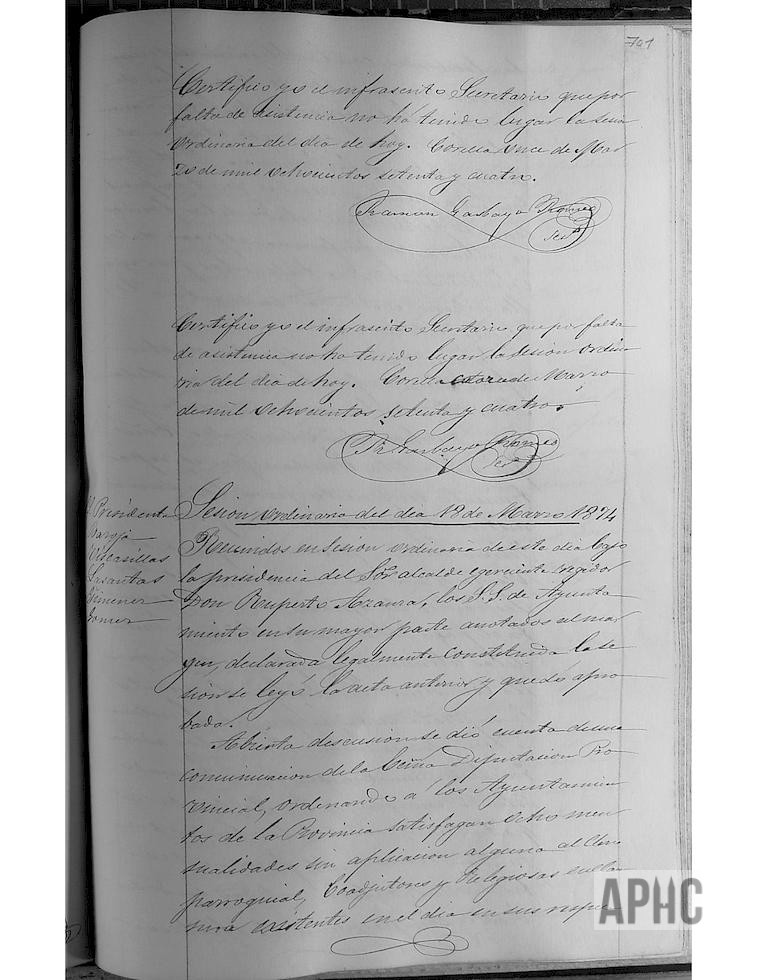 701
Certifico yo el infrascrito Secretario que por
falta de asistencia no há tenido lugar la sesion
Ordinaria del dia de hoy. Corella Once de Mar
zo de mil Ochocientos setenta y cuatro.
Ramon Garbayo Romeo
Secº
Certifico yo el infrascrito Secretario que por falta
de asistencia no ha tenido lugar la sesion Ordina
ria del dia de hoy. Corella catorce de Marzo
de mil Ochocientos setenta y cuatro.
Rn Garbayo Romeo
Secº
Sesion Ordinaria del dia 18 de Marzo 1874
Presidente
Viscasillas
Lasantas
Gimenez
Gomez
Reunidos en Sesion Ordinaria de este dia bajo
la presidencia del Sôr alcalde egerciente regidor
Don Ruperto Azaura, los S.S. de Ayunta
miento en su mayor parte anotados al mar
gen, declarada legalmente constituida la se
sion se leyó la acta anterior y quedó apro
bada.
Abierta descusion se dió cuenta de una
comunicacion de la Diputacion Pro
vincial, ordenando á los Ayuntamien
tos de la Provincia satisfagan Ocho men
sualidades sin aplicacion alguna al Clero
parroquial, Coadjutores y Religiosas
existentes en el dia en sus respec
APHC